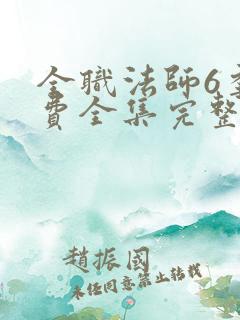 全職法師6
費全集完整
趙振國
未任同意禁止轉載